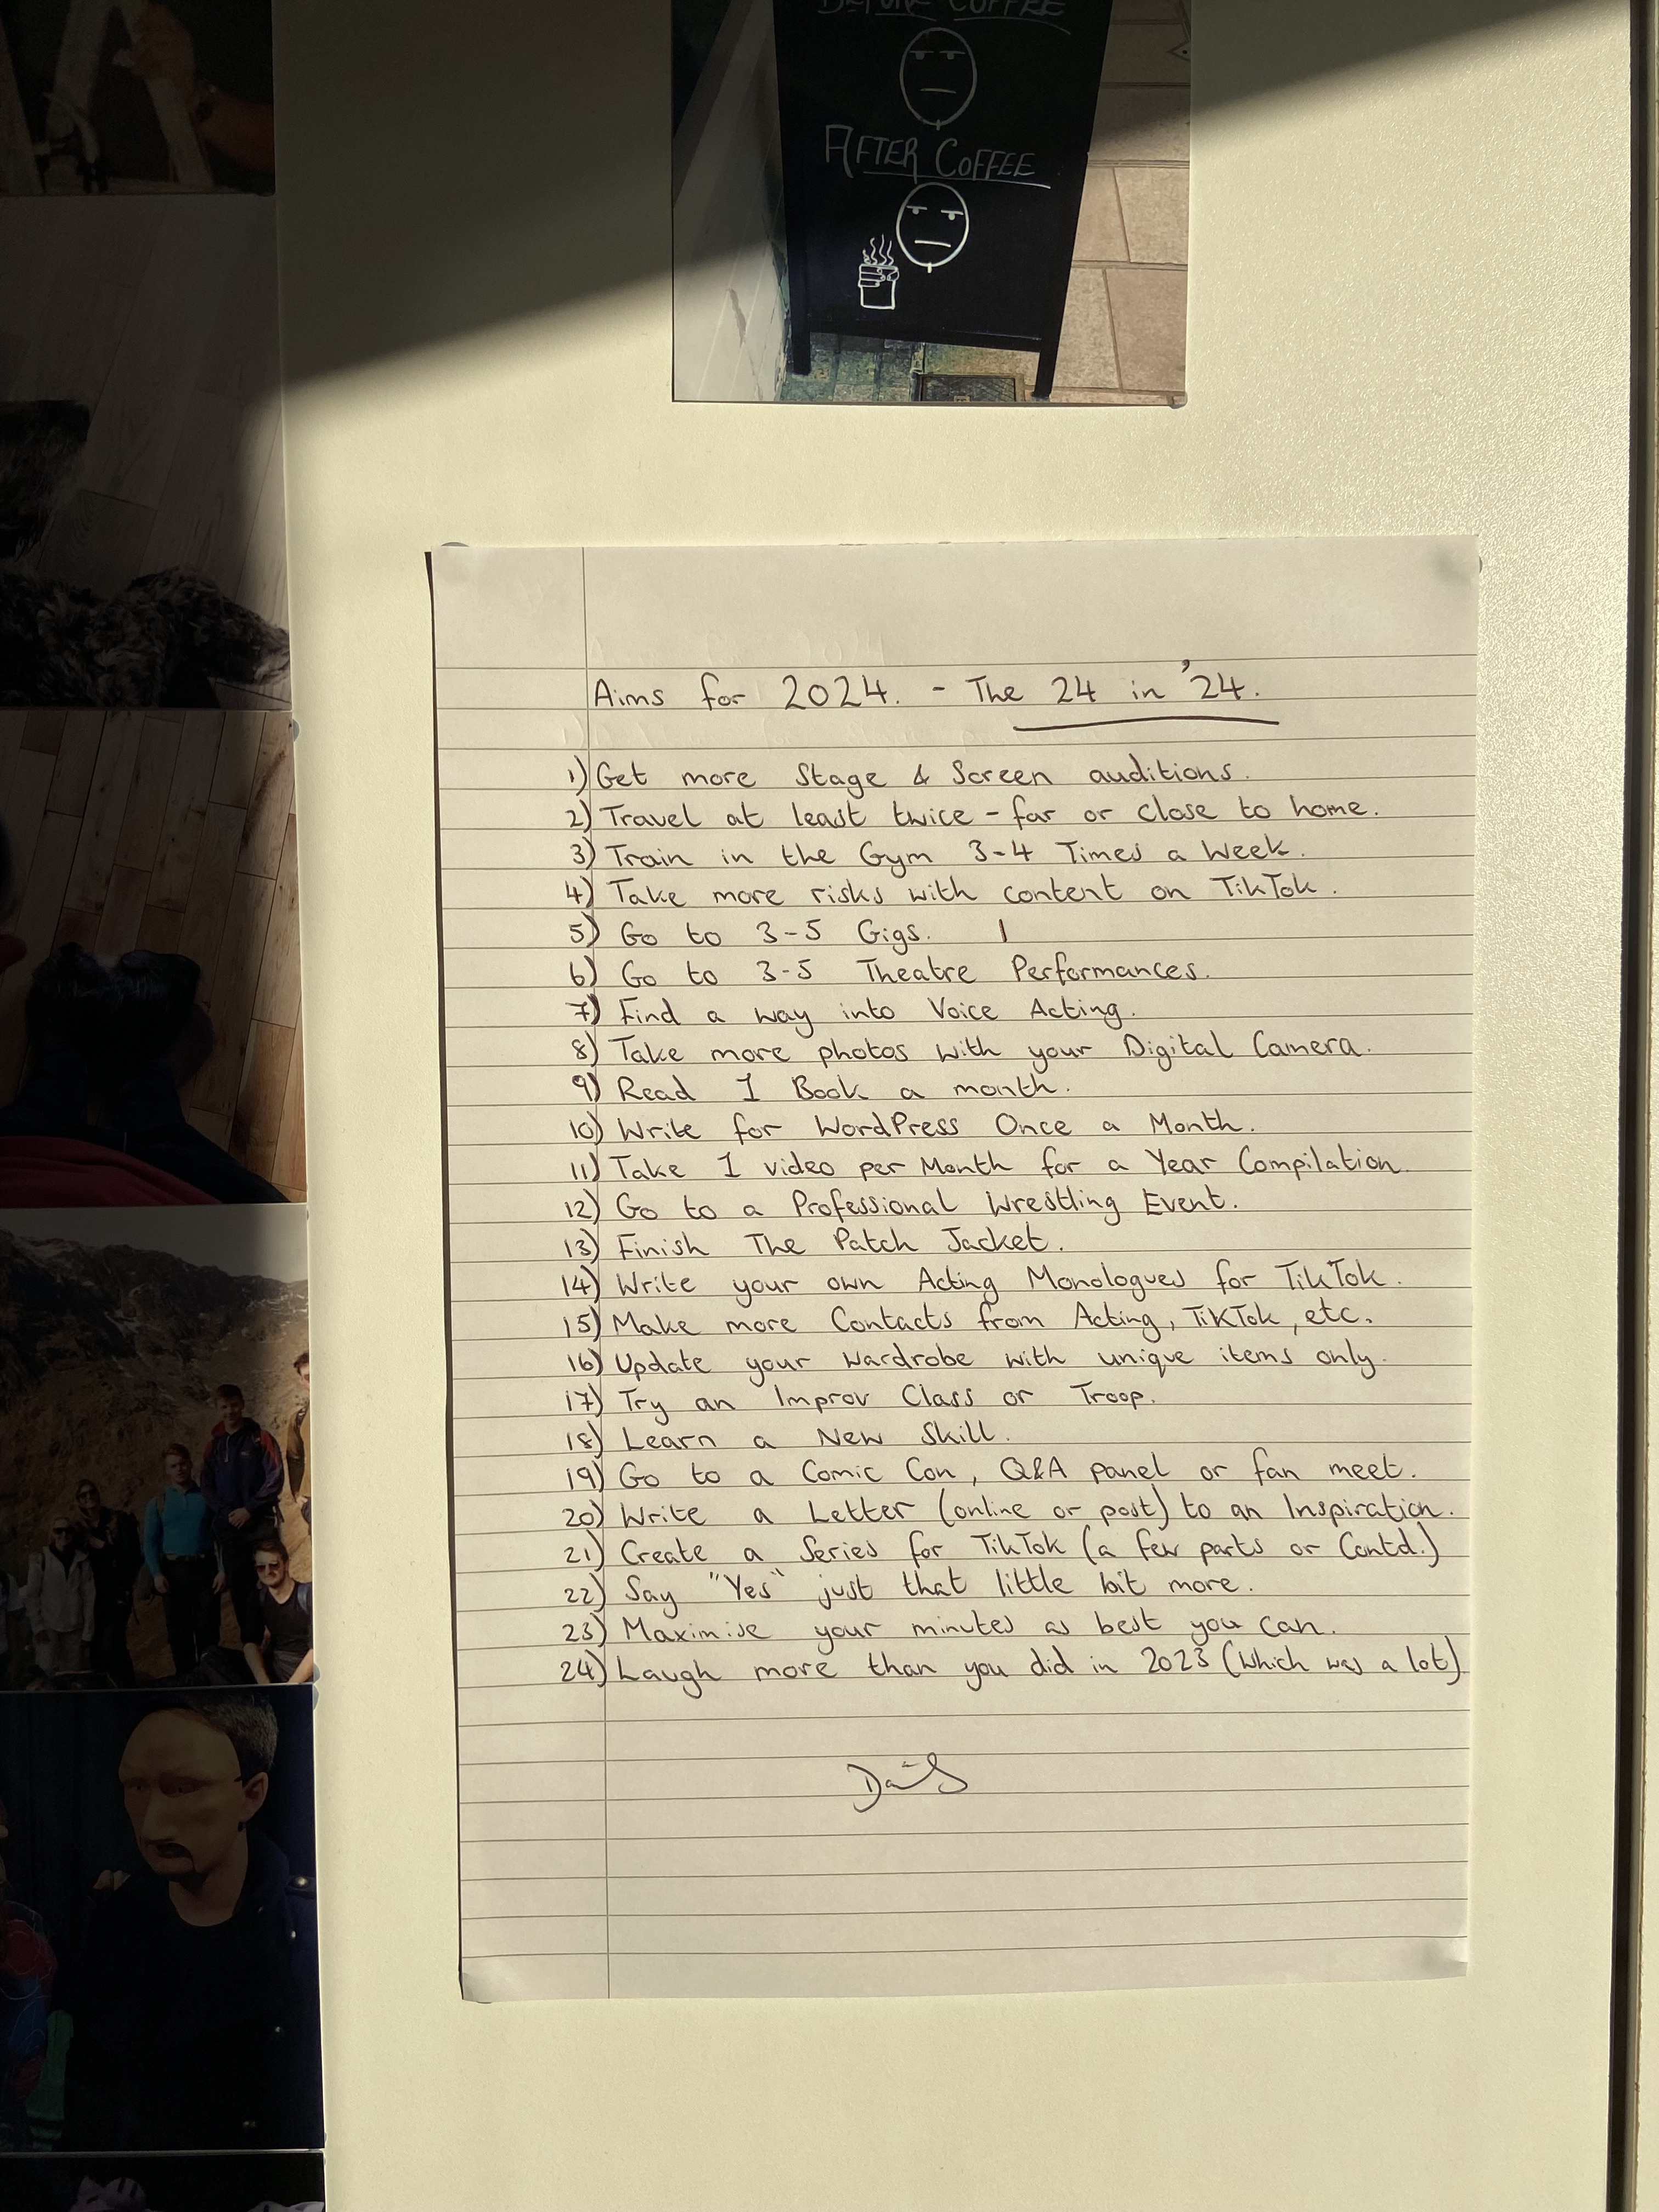 BEFORE COFFEE
AFTER COFFEE
Aims for 2024. - The 24 in '24.
1) Get more Stage & Screen auditions.
2) Travel at least twice - far or close to home.
3) Train in the Gym 3-4 Times a Week.
4) Take more risks with content on TikTok.
5) Go to 3-5 Gigs. I
6) Go to 3-5 Theatre Performances.
7) Find a way into Voice Acting.
8) Take more photos with your Digital Camera.
9) Read 1 Book a month.
10) Write for WordPress Once a Month.
11) Take 1 video per Month for a Year Compilation.
12) Go to a Professional Wrestling Event.
13) Finish The Patch Jacket.
14) Write your own Acting Monologues for TikTok.
15) Make more Contacts from Acting, TikTok, etc.
16) Update your wardrobe with unique items only.
17) Try an Improv Class or Troop.
18) Learn a New Skill.
19) Go to a Comic Con, Q&A panel or fan meet.
20) Write a Letter (online or post) to an Inspiration.
21) Create a Series for TikTok (a few parts or Contd.)
22) Say "Yes" just that little bit more.
23) Maximise your minutes as best you can.
24) Laugh more than you did in 2023 (Which was a lot)